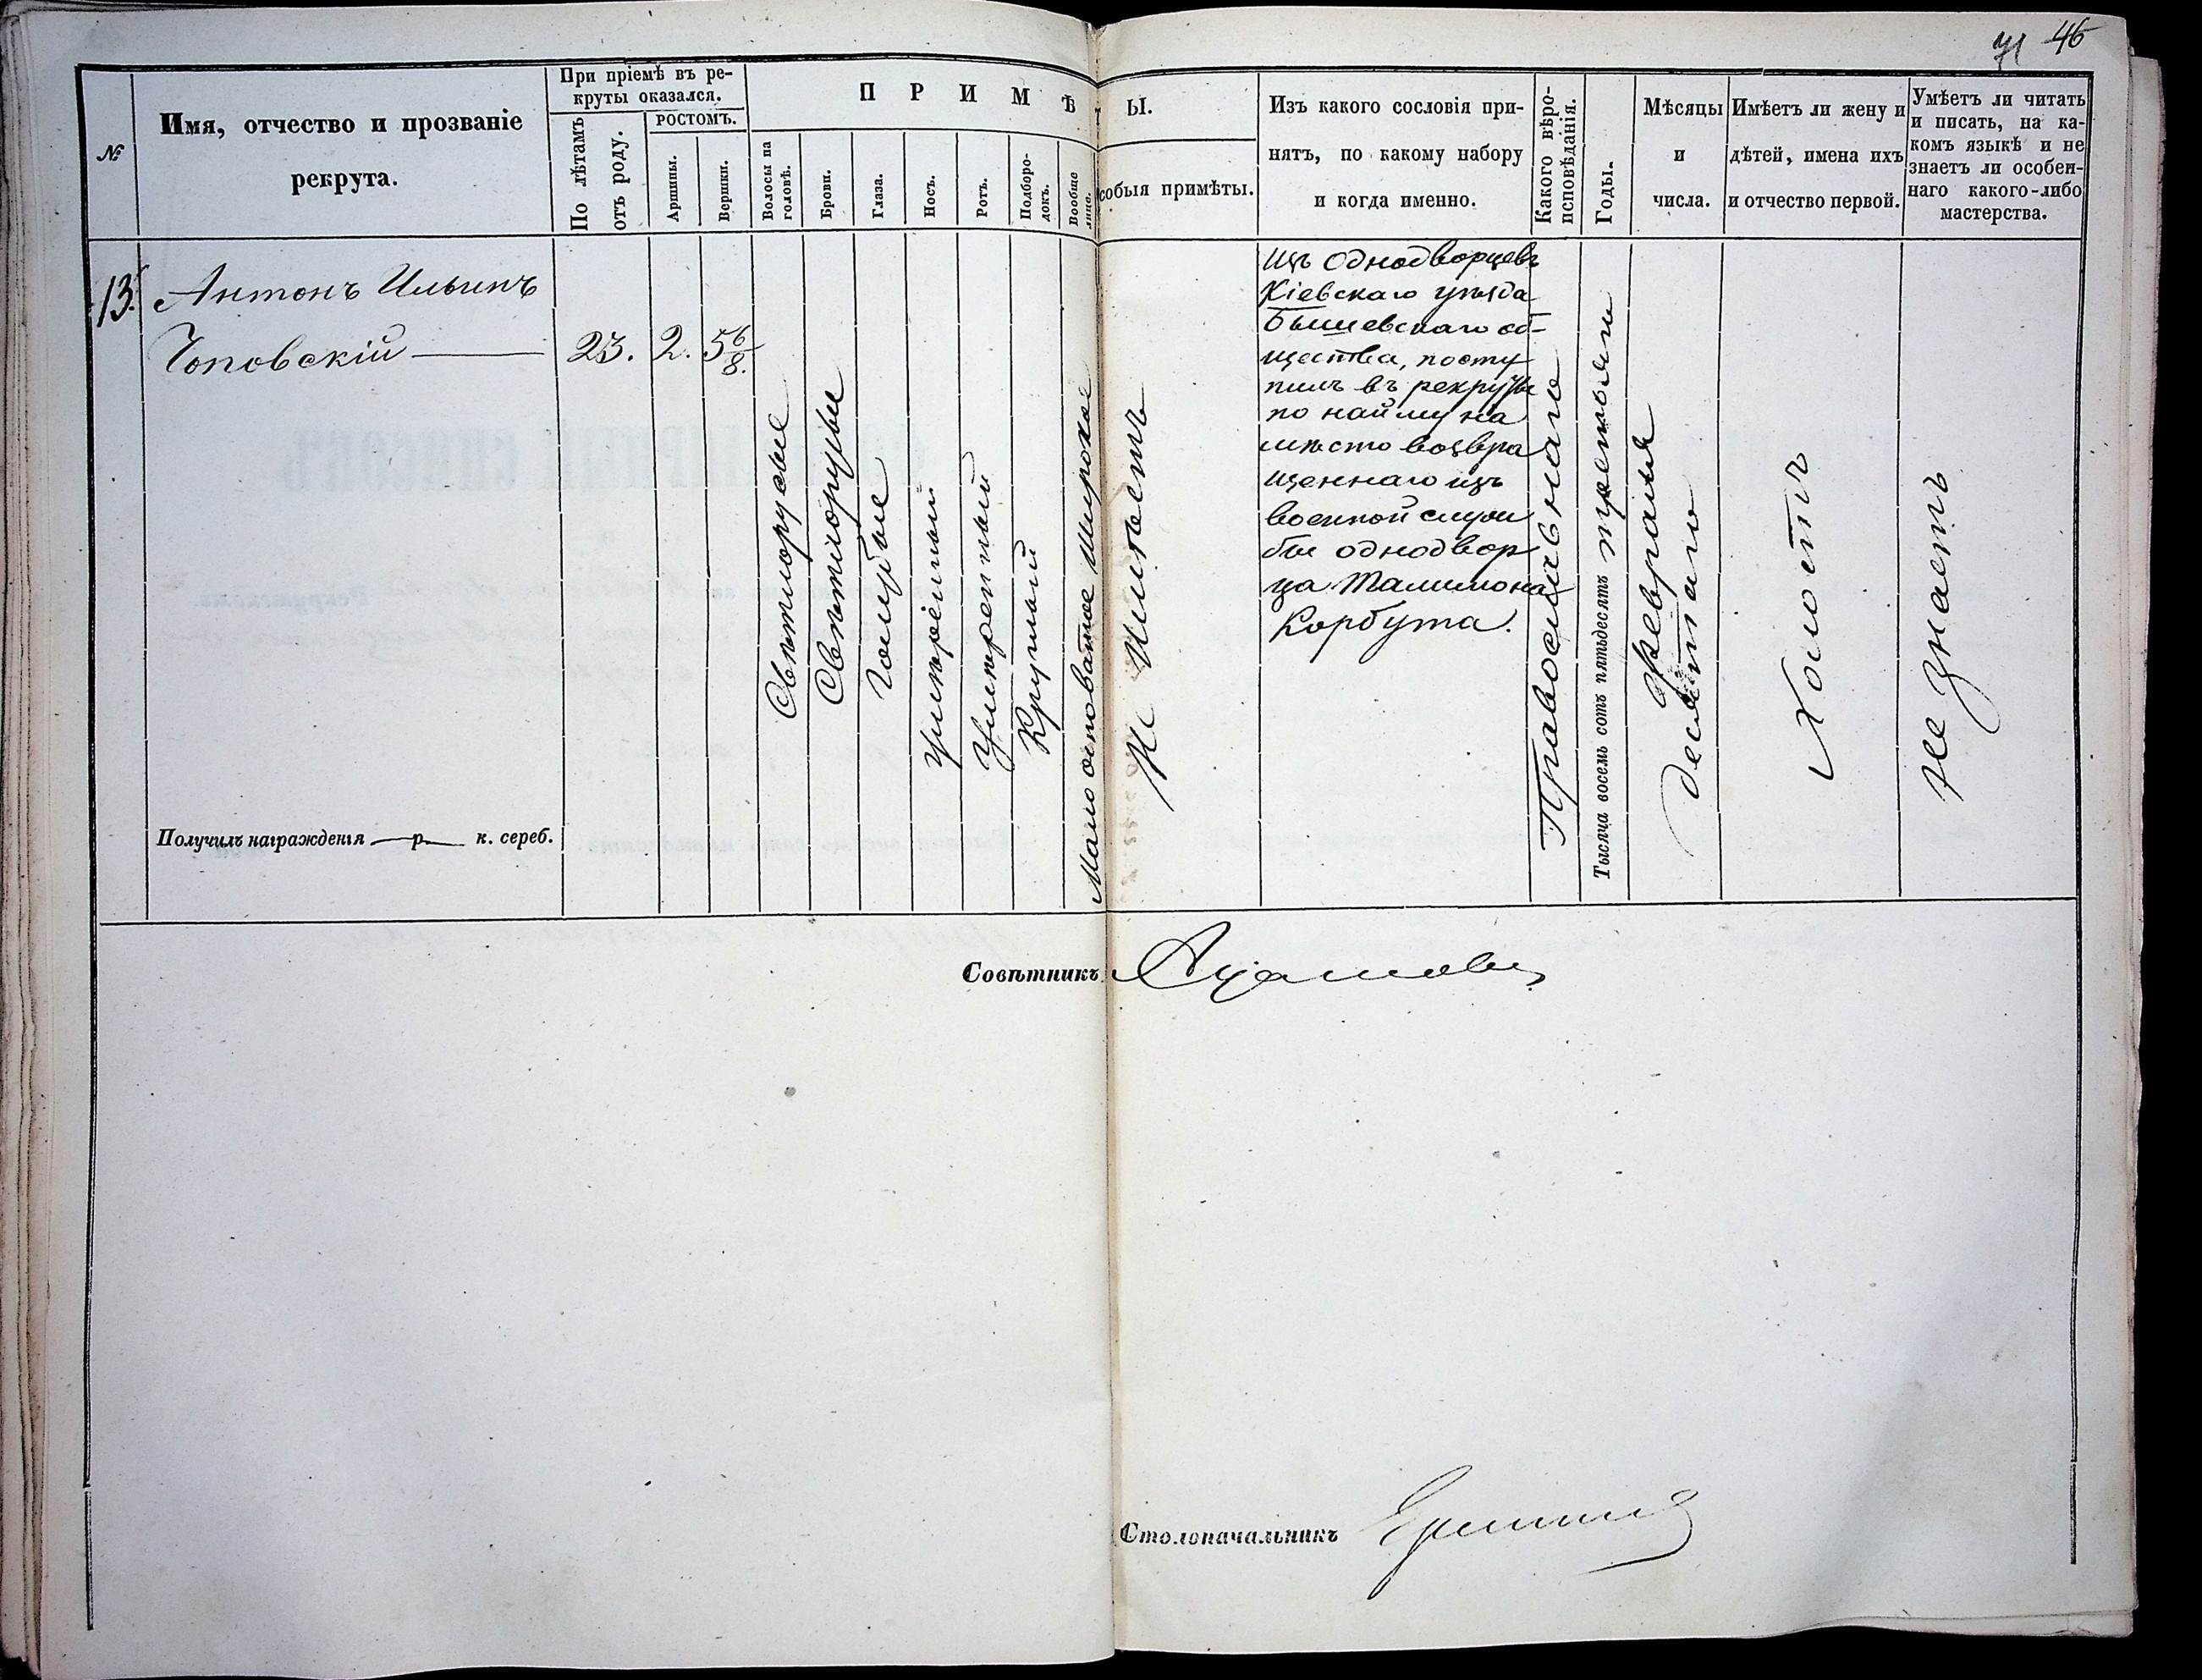 71 46
№
Имя, отчество и прозваніе
рекрута.
При пріемѣ въ ре-
круты оказался.
По лѣтамъ
отъ роду.
РОСТОМЪ.
Аршины.
Вершки.
ПРИМѢ
Ы.
Волосы на
головѣ.
Брови.
Глаза.
Носъ.
Ротъ.
Подборо-
докъ.
Вообще
лице.
собыя примѣты.
Изъ какого сословія при-
нятъ, по какому набору
и когда именно.
Какого вѣро-
исповѣданія.
Годы.
Мѣсяцы
и
числа.
Имѣетъ ли жену и
дѣтей, имена ихъ
и отчество первой.
Умѣетъ ли читать
и писать, на ка-
комъ языкѣ и не
знаетъ ли особен-
наго какого-либо
мастерства.
13.
Антонъ Ильинъ
Чоповскій
23.
2.
5 6/8.
Свѣтлорусые
Свѣтлорусые
Голубые
Умѣренный
Умѣренный
Круглый
Мало осповатое широкое
Не Имѣетъ
Изъ однодворцевъ
Кіевскаго уѣзда
Бышевскаго об-
щества, посту
пилъ въ рекруты
по найму на
мѣсто возвра
щеннаго изъ
военной служ
бы однодвор
ца Талимона
Корбута.
Православнаго
Тысяча восемь сотъ пятьдесятъ третьяго
Февраля
десятаго
Холостъ
Не знаетъ
Получилъ награжденія — р — к. сереб.
Совѣтникъ
Столоначальникъ